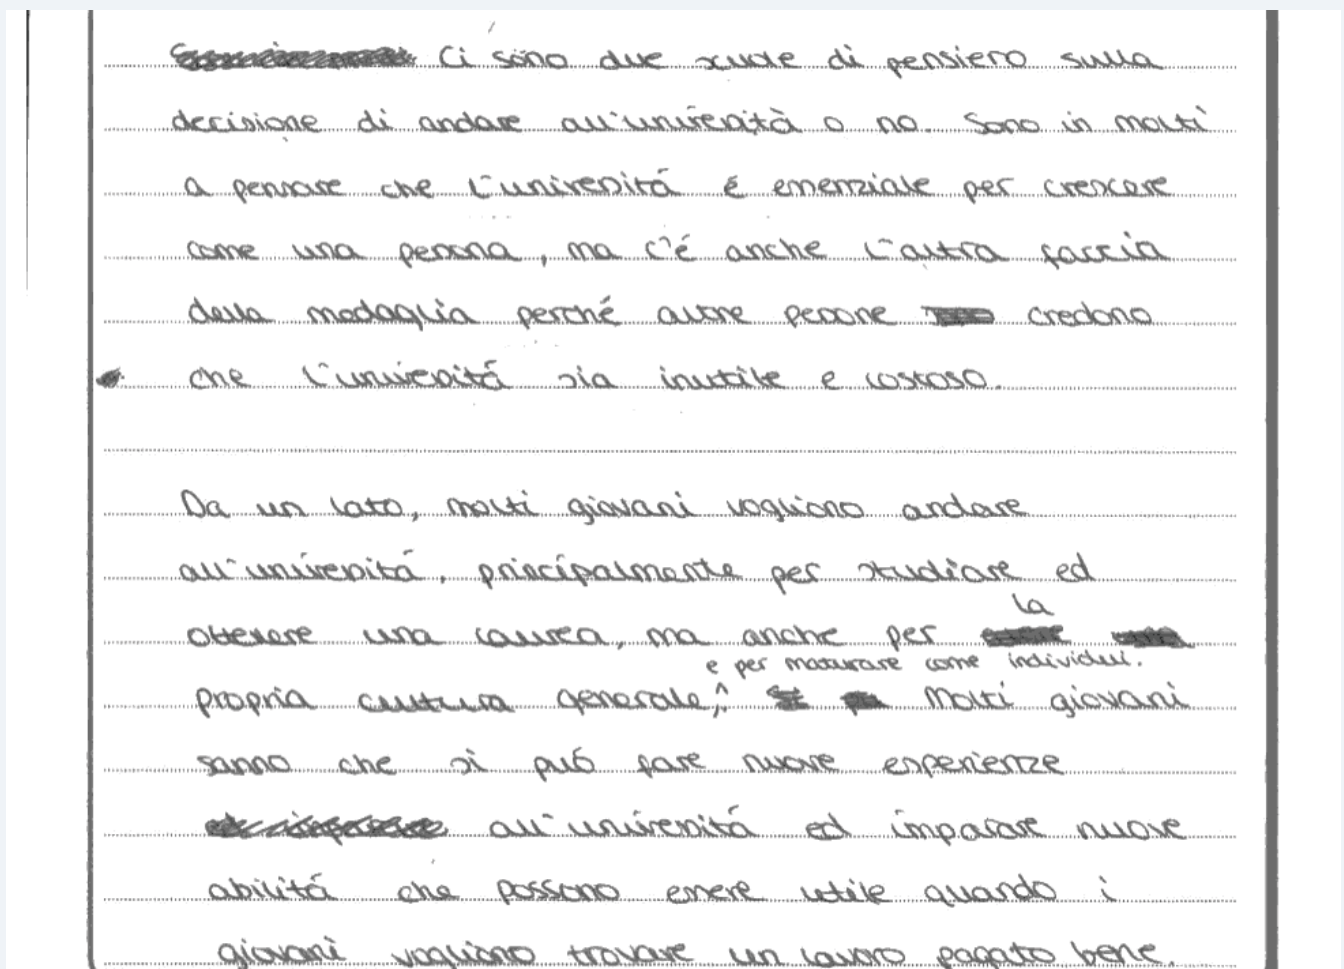 Ci sono due scuole di pensiero sulla
decisione di andare all'università o no. Sono in molti
a pensare che l'università é essenziale per crescere
come una persona, ma c'é anche l'altra faccia
della medaglia perché altre persone credono
che l'universitá sia inutile e costoso.
Da un lato, molti giovani vogliono andare
all'universitá, principalmente per studiare ed
la
ottenere una laurea, ma anche per
e per maturare come individui.
propria cultura generale, Molti giovani
sanno che si puó fare nuove esperienze
all'universitá ed imparare nuove
abilitá che possono essere utile quando i
giovani vogliono trovare un lavoro pagato bene.